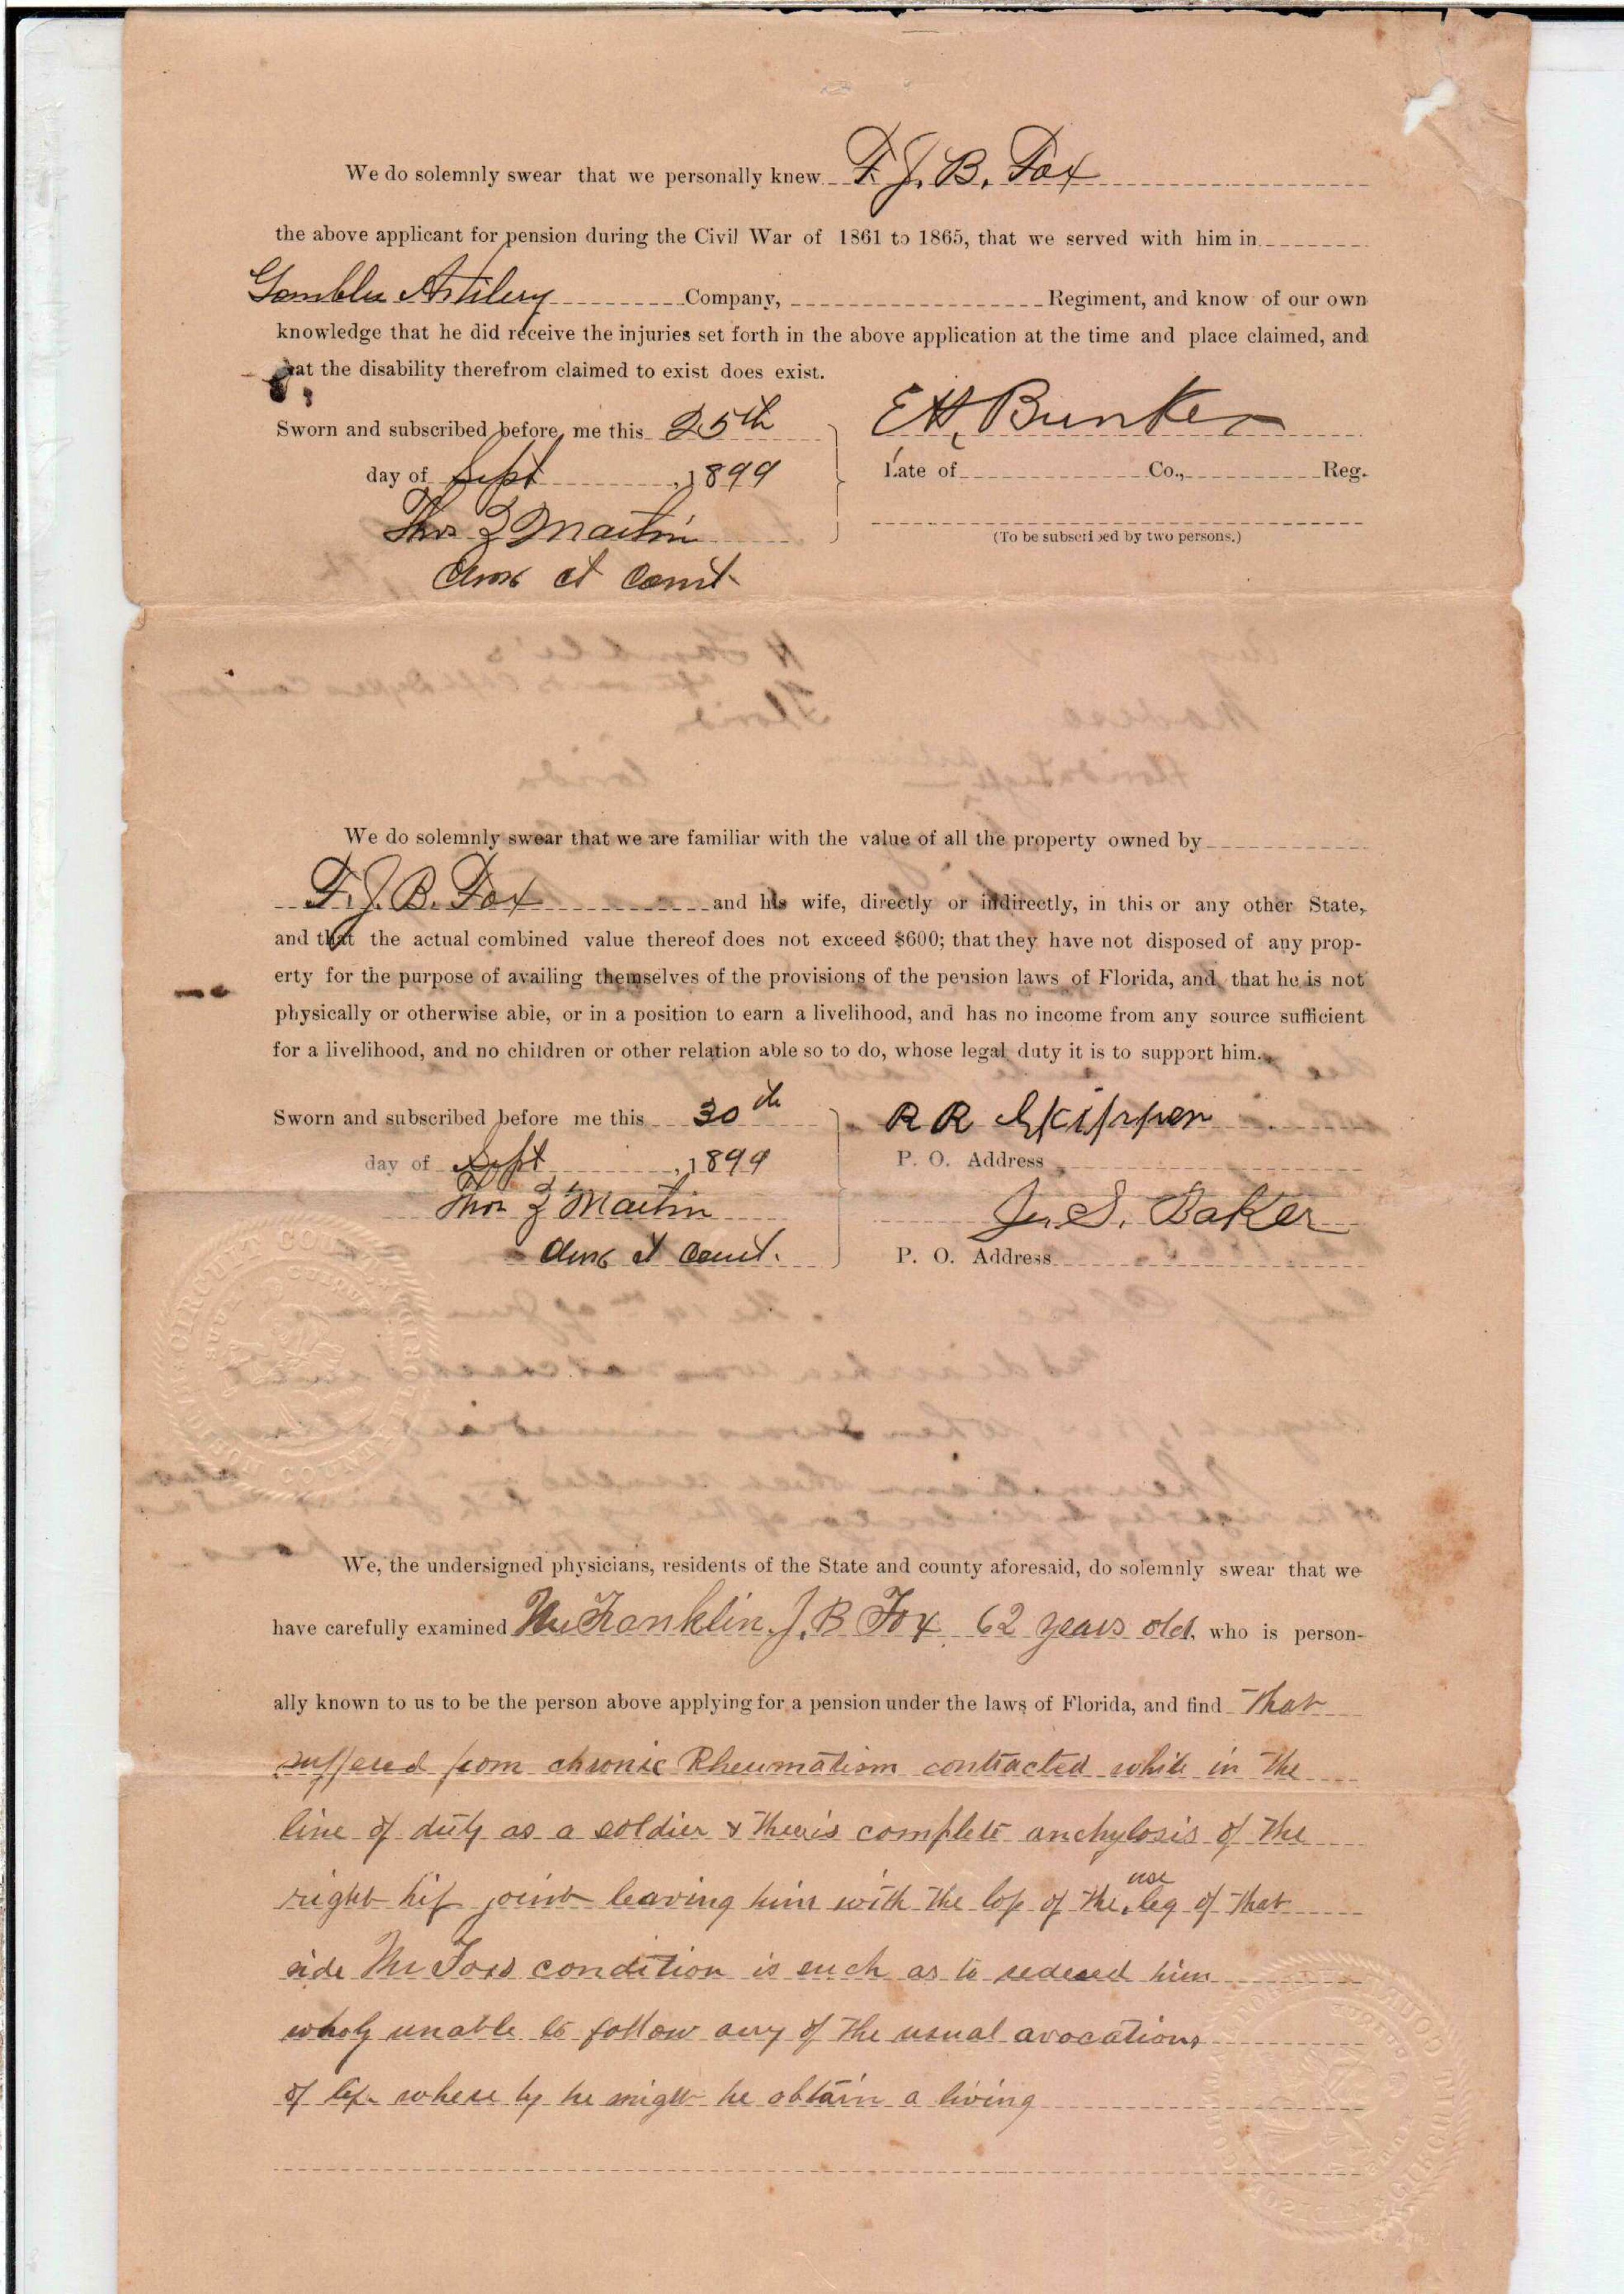 We do solemnly swear that we personally knew F. J. B. Fox
the above applicant for pension during the Civil War of 1861 to 1865, that we served with him in
Gambles Artilery Company, Regiment, and know of our own
knowledge that he did receive the injuries set forth in the above application at the time and place claimed, and
at the disability therefrom claimed to exist does exist.
Sworn and subscribed before me this 25th
day of Sept, 1899
Thos Z Martin
Clerk ct Court
E H, Bunker
Late of Co., Reg.
(To be subscribed by two persons.)
We do solemnly swear that we are familiar with the value of all the property owned by
F. J. B. Fox and his wife, directly or indirectly, in this or any other State,
and that the actual combined value thereof does not exceed $600; that they have not disposed of any prop-
erty for the purpose of availing themselves of the provisions of the pension laws of Florida, and that he is not
physically or otherwise able, or in a position to earn a livelihood, and has no income from any source sufficient
for a livelihood, and no children or other relation able so to do, whose legal duty it is to support him.
Sworn and subscribed before me this 30th
day of Sept, 1899
Thos Z Martin
Clerk ct Court.
R R Skipper
P. O. Address
S. Baker
P. O. Address
CIRCUIT COURT
BRADFORD COUNTY FLORIDA
We, the undersigned physicians, residents of the State and county aforesaid, do solemnly swear that we
have carefully examined Mr Franklin. J. B Fox 62 years old, who is person-
ally known to us to be the person above applying for a pension under the laws of Florida, and find That
suffered from chronic Rheumatism contracted while in the
line of duty as a soldier & theris complete anchylosis of the
right hip joint leaving him with the loss of the use leg of that
side Mr Foxs condition is such as to redered him
wholy unable to follow any of the usual avocations
of life where by he might he obtain a living